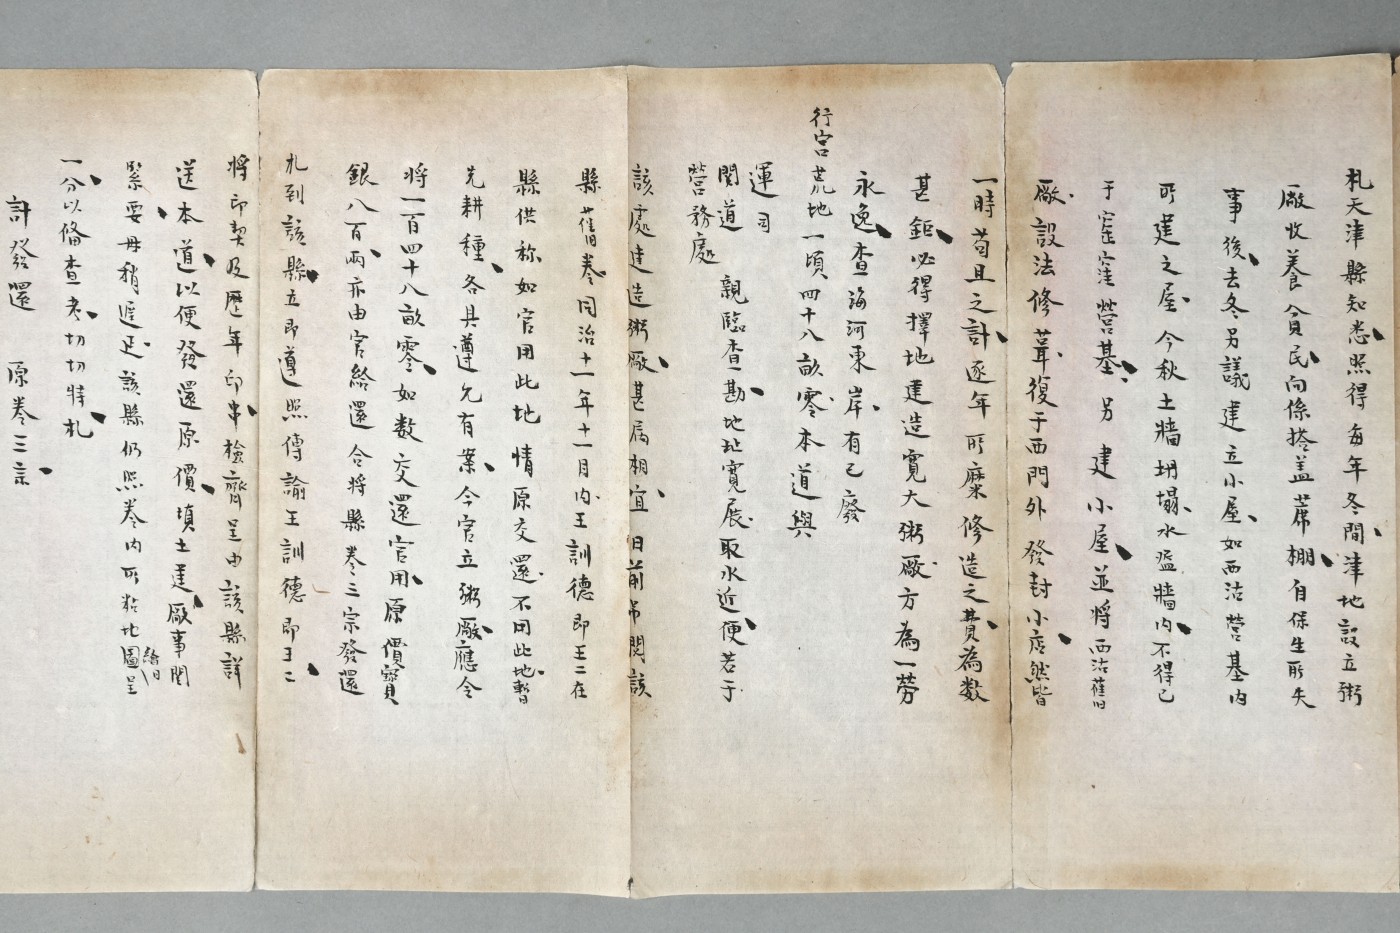 札天津縣知悉照得每年冬間津地設立粥
廠收養貧民向係搭蓋蓆棚自保生所失
事後去冬另議建立小屋如西沽營基內
可建之屋今秋土牆坍塌水盈牆內不得已
于窑窪營基另建小屋並將西沽舊
廠設法修葺復于西門外發封小店然皆
一時苟且之計逐年所糜修造之費為數
甚鉅必得擇地建造寬大粥廠方為一勞
永逸查海河東岸有已廢
行宮荒地一頃四十八畝零本道與
運司
關道
營務處
親臨查勘地址寬展取水近便若于
該處建造粥廠甚屬相宜日前吊閱該
縣舊卷同治十一年十一月內王訓德即王二在
縣供称如官用此地情原交還不用此地暫
先耕種各具遵允有案今官立粥廠應令
將一百四十八畝零如数交還官用原價寶
銀八百兩亦由官給還合將縣卷三宗發還
札到該縣立即遵照傳諭王訓德即王二
將印契及歷年印串檢齊呈由該縣詳
送本道以便發還原價填土建廠事關
緊要毋稍遲延該縣仍照卷內所粘地圖繪呈
一分以俻查考切切特札
計發還　原卷三宗